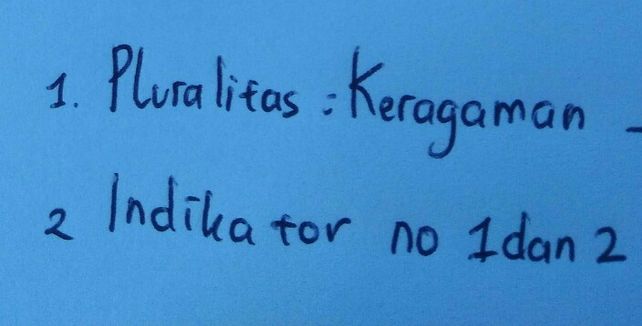 1. Pluralitas : Keragaman -
2 Indikator no 1 dan 2